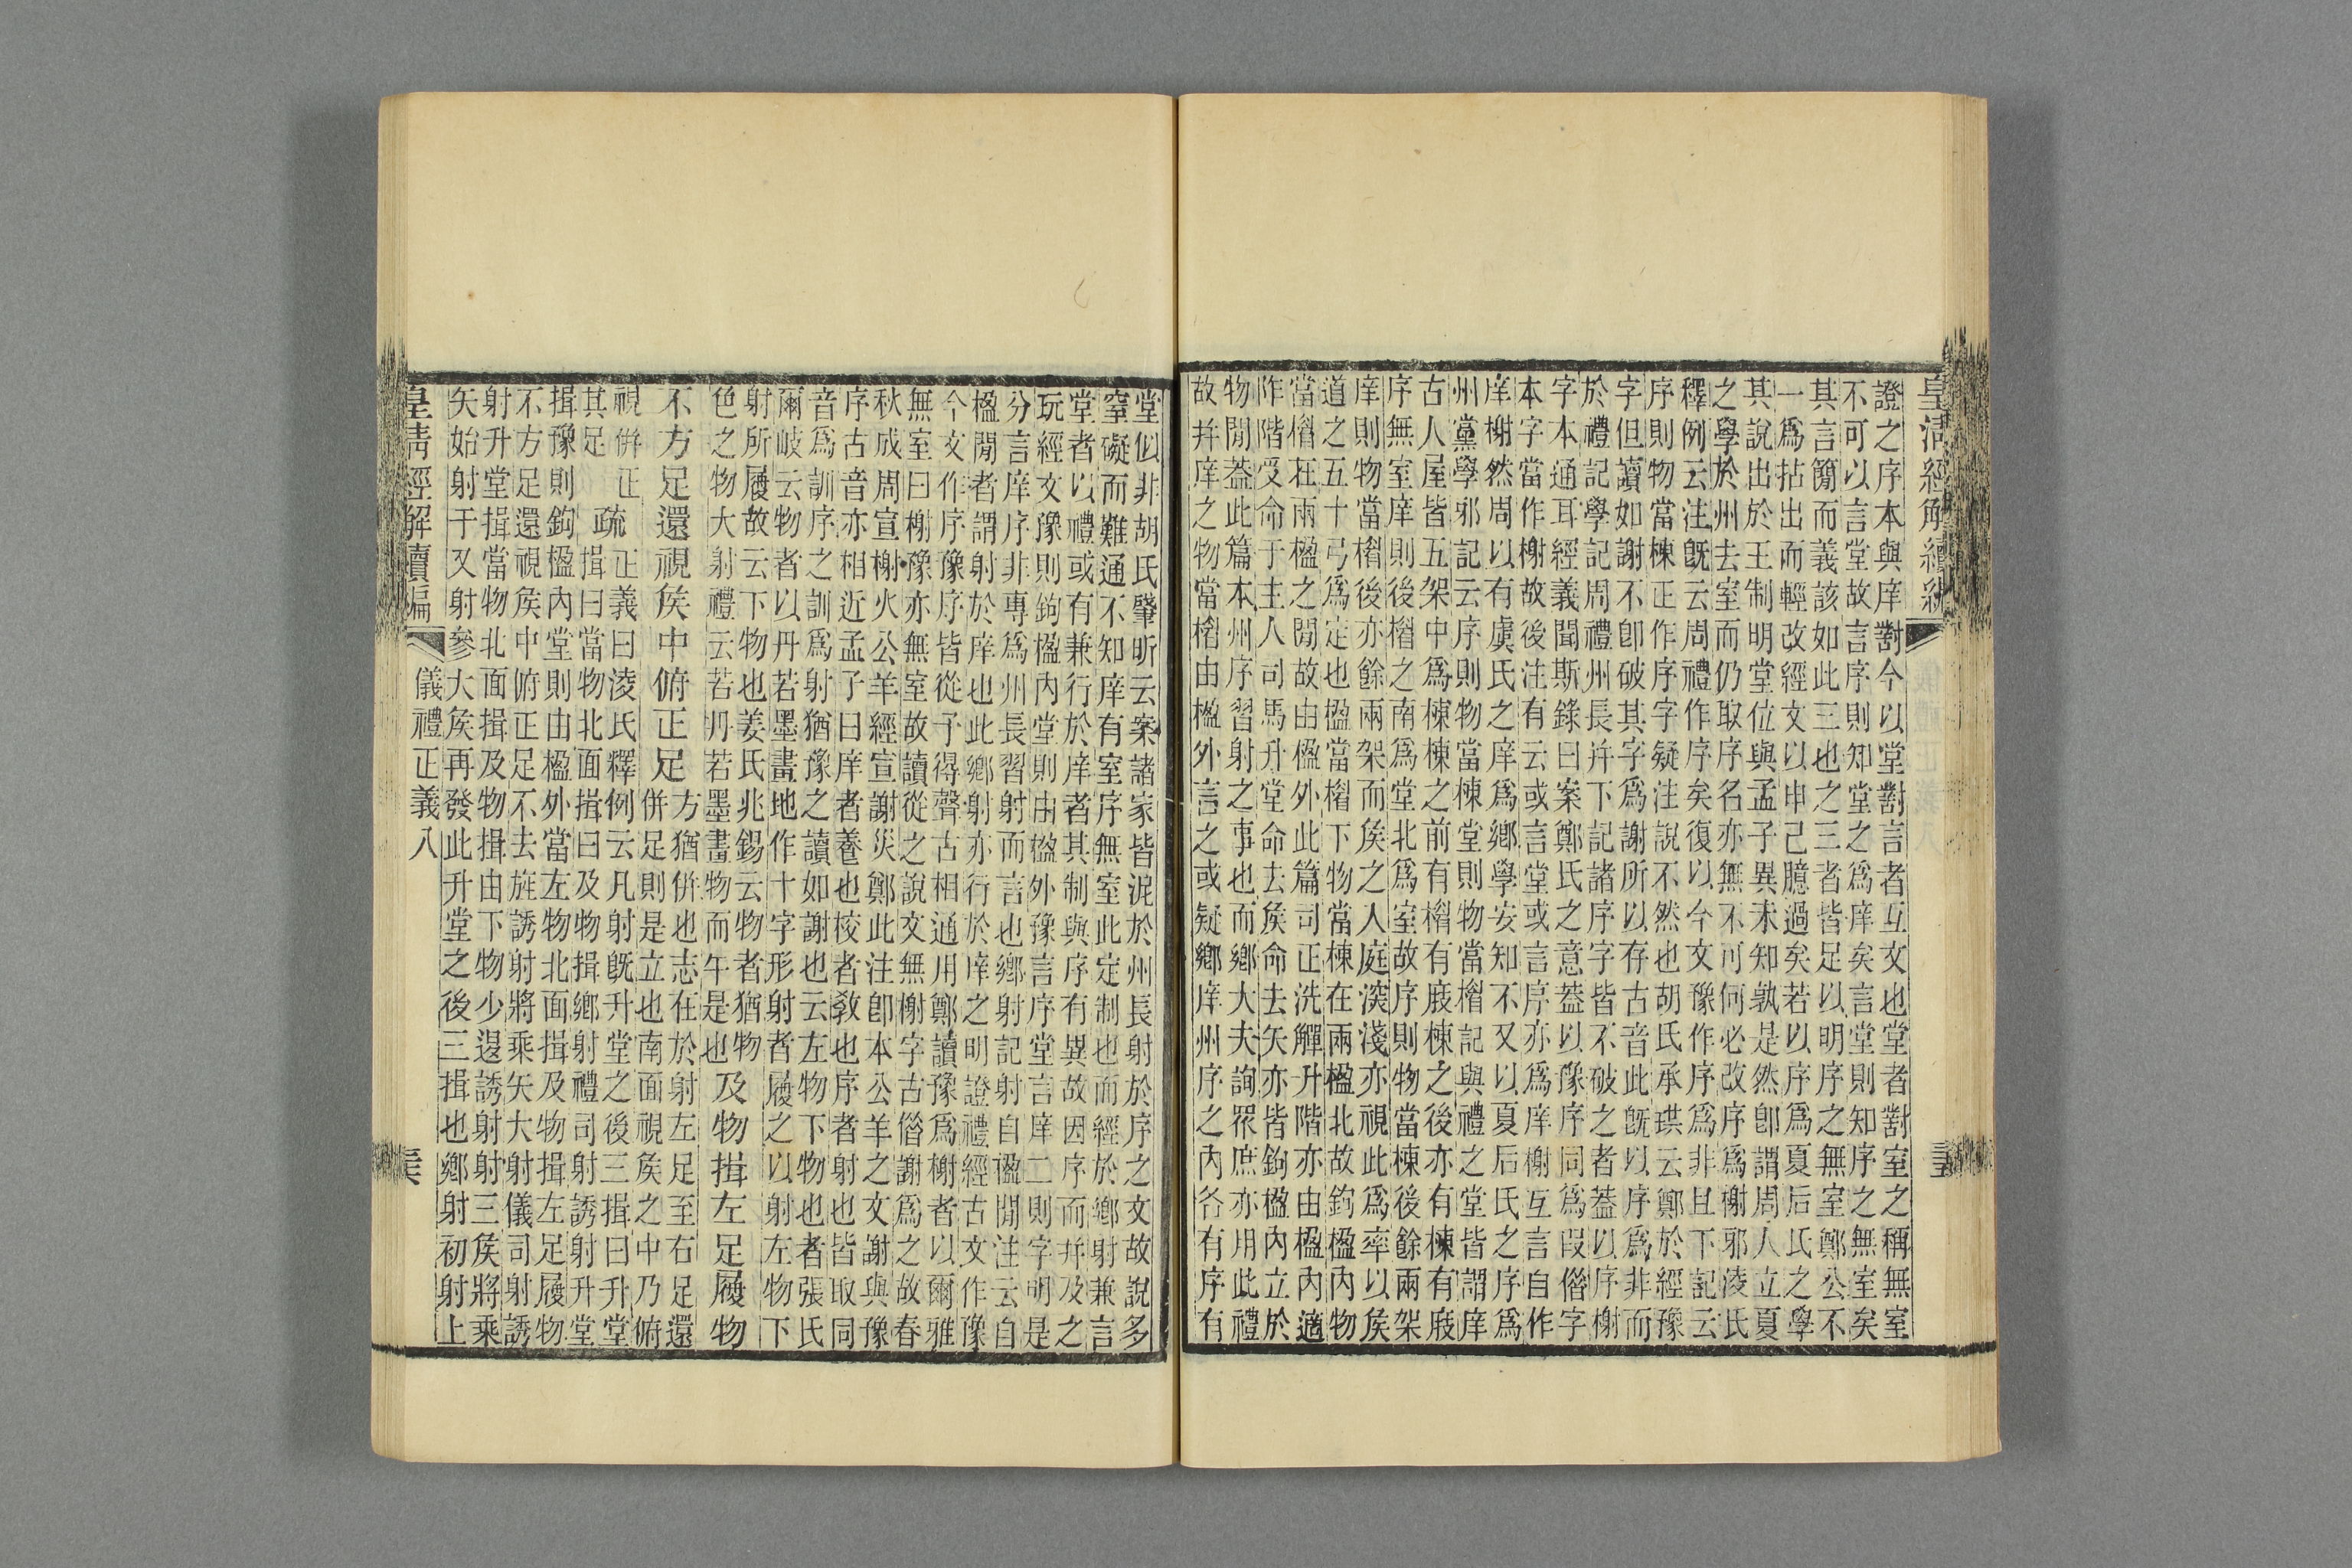 皇清經解續編
證之序本與庠對今以堂對言者互文也堂者對室之稱無室
不可以言堂故言序則知堂之爲庠矣言堂則知序之無室矣
其言簡而義該如此三也之三者皆足以明序之無室鄭公不
一爲拈出而輕改經文以申己臆過矣若以序爲夏后氏之學
其說出於王制明堂位與孟子異未知孰是然卽謂周人立夏
之學於州去室而仍取序名亦無不可何必改序爲榭邪淩氏
釋例云注旣云周禮作序矣復以今文豫作序爲非且下記云
序則物當棟正作序字疑注說不然也胡氏承珙云鄭於經豫
字但讀如謝不卽破其字爲謝所以存古音此旣以序爲非而
於禮記學記周禮州長幷下記諸序字皆不破之者葢以序榭
字本通耳經義聞斯錄曰案鄭氏之意葢以豫序同爲叚僭字
本字當作榭故後注有云或言堂或言序亦爲庠榭互言自作
庠榭然周以有虞氏之庠爲鄉學安知不又以夏后氏之序爲
州黨學邪記云序則物當棟堂則物當楣記與禮之堂皆謂庠
古人屋皆五架中爲棟棟之前有楣有庪棟之後亦有棟有庪
序無室庠則後楣之南爲堂北爲室故序則物當棟後餘兩架
庠則物當楣後亦餘兩架而矦之人庭深淺亦視此爲率以矦
道之五十弓爲定也楹當楣下物當棟在兩楹北故鉤楹內物
當楣在兩楹之閒故由楹外此篇司正洗觶升階亦由楹內適
阼階受命于主人司馬升堂命去矦命去矢亦皆鉤楹內立於
物閒葢此篇本州序習射之事也而鄉大夫詢眾庶亦用此禮
故幷庠之物當楣由楹外言之或疑鄉庠州序之內各有序有
堂似非胡氏肇昕云案諸家皆泥於州長射於序之文故說多
窒礙而難通不知庠有室序無室此定制也而經於鄉射兼言
堂者以禮或有兼行於庠者其制與序有異故因序而幷及之
玩經文豫則鉤楹內堂則由楹外豫言序堂言庠二則字明是
分言庠序非專爲州長習射而言也鄉射記射自楹閒注云自
楹閒者謂射於庠也此鄉射亦行於庠之明證禮經古文作豫
今文作序豫序皆從予得聲古相通用鄭讀豫爲榭者以爾雅
無室曰榭豫亦無室故讀從之說文無榭字古僭謝爲之故春
秋成周宣榭火公羊經宣謝災鄭此注卽本公羊之文謝與豫
序古音亦相近孟子曰庠者養也校者敎也序者射也皆取同
音爲訓序之訓爲射猶豫之讀如謝也云左物下物也者張氏
爾岐云物者以丹若墨畫地作十字形射者履之以射左物下
射所履故云下物也姜氏兆錫云物者猶物
色之物大射禮云若丹若墨畫物而午是也
及物揖左足履物
不方足還視矦中俯正足
方猶併也志在於射左足至右足還
併足則是立也南面視矦之中乃俯
視併正
其足
疏
正義曰淩氏釋例云凡射旣升堂之後三揖曰升堂
揖曰當物北面揖曰及物揖鄉射禮司射誘射升堂
揖豫則鉤楹內堂則由楹外當左物北面揖及物揖左足履物
不方足還視矦中俯正足不去旌誘射將乘矢大射儀司射誘
射升堂揖當物北面揖及物揖由下物少退誘射射三矦將乘
矢始射干又射參大矦再發此升堂之後三揖也鄉射初射上
皇清經解續編
儀禮正義八